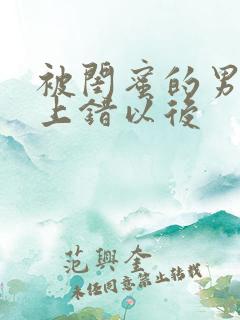 被闺蜜的男
上错以后
范兴奎
未经同意禁止转载